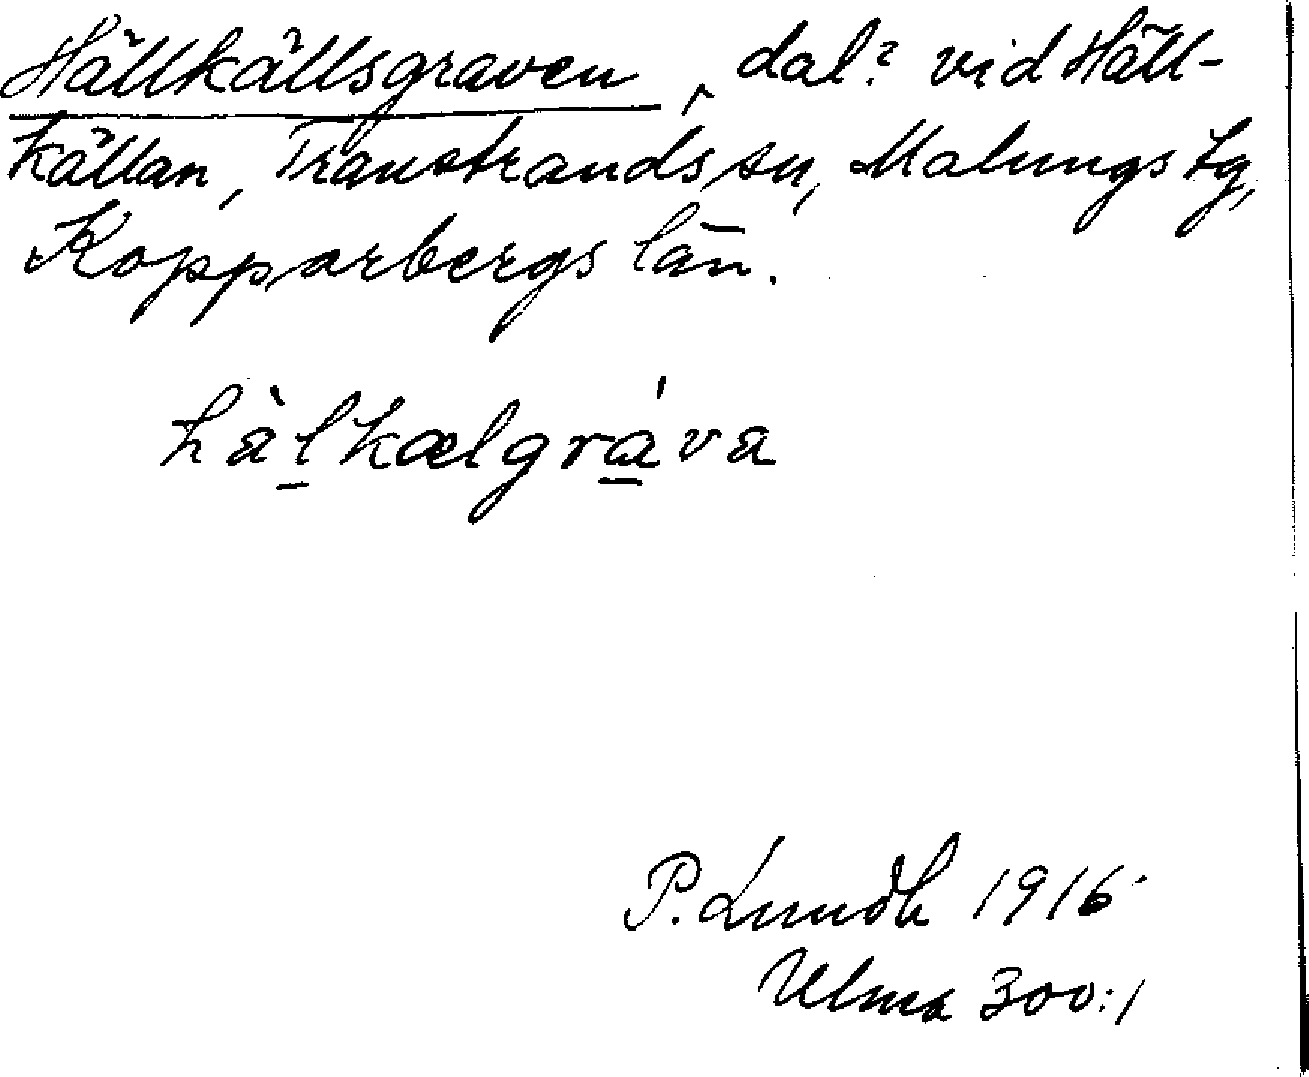 Hällkällsgraven, dal? vid Häll-
källan, Transtrands sn, Malungs tg,
Kopparbergs län.
hàlkælgráva
P. Lundh 1916
Ulma 300:1